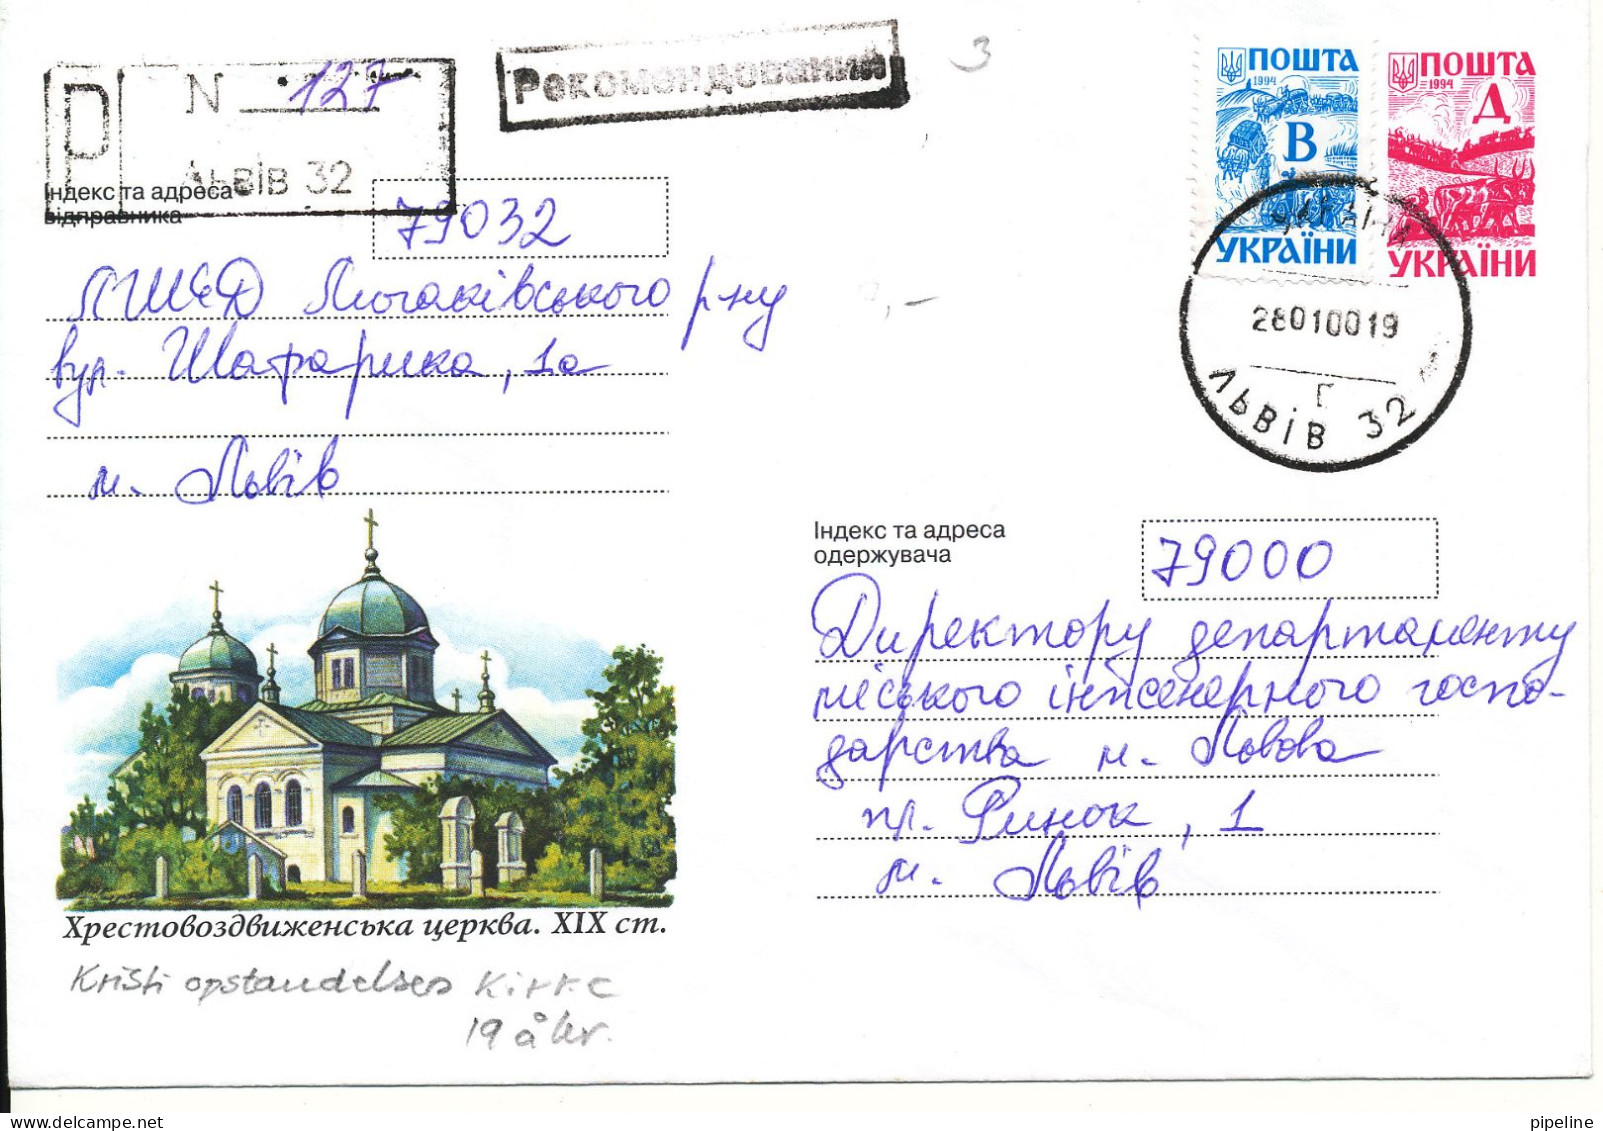 P
N 127
Львів 32
Рекомендований
3
ПОШТА
1994
В
УКРАЇНИ
ПОШТА
1994
Д
УКРАЇНИ
УКРАЇНА
28010019
Г
ЛЬВІВ 32
Індекс та адреса
відправника
79032
ЛШЕД Личаківського р-ну
вул. Шафарика, 1а
м. Львів
Індекс та адреса
одержувача
79000
Директору департаменту
міського інженерного госпо-
дарства м. Львова
пл. Ринок, 1
м. Львів
Хрестовоздвиженська церква. XIX ст.
Kristi opstandelses Kirke
19 århr.
pipeline